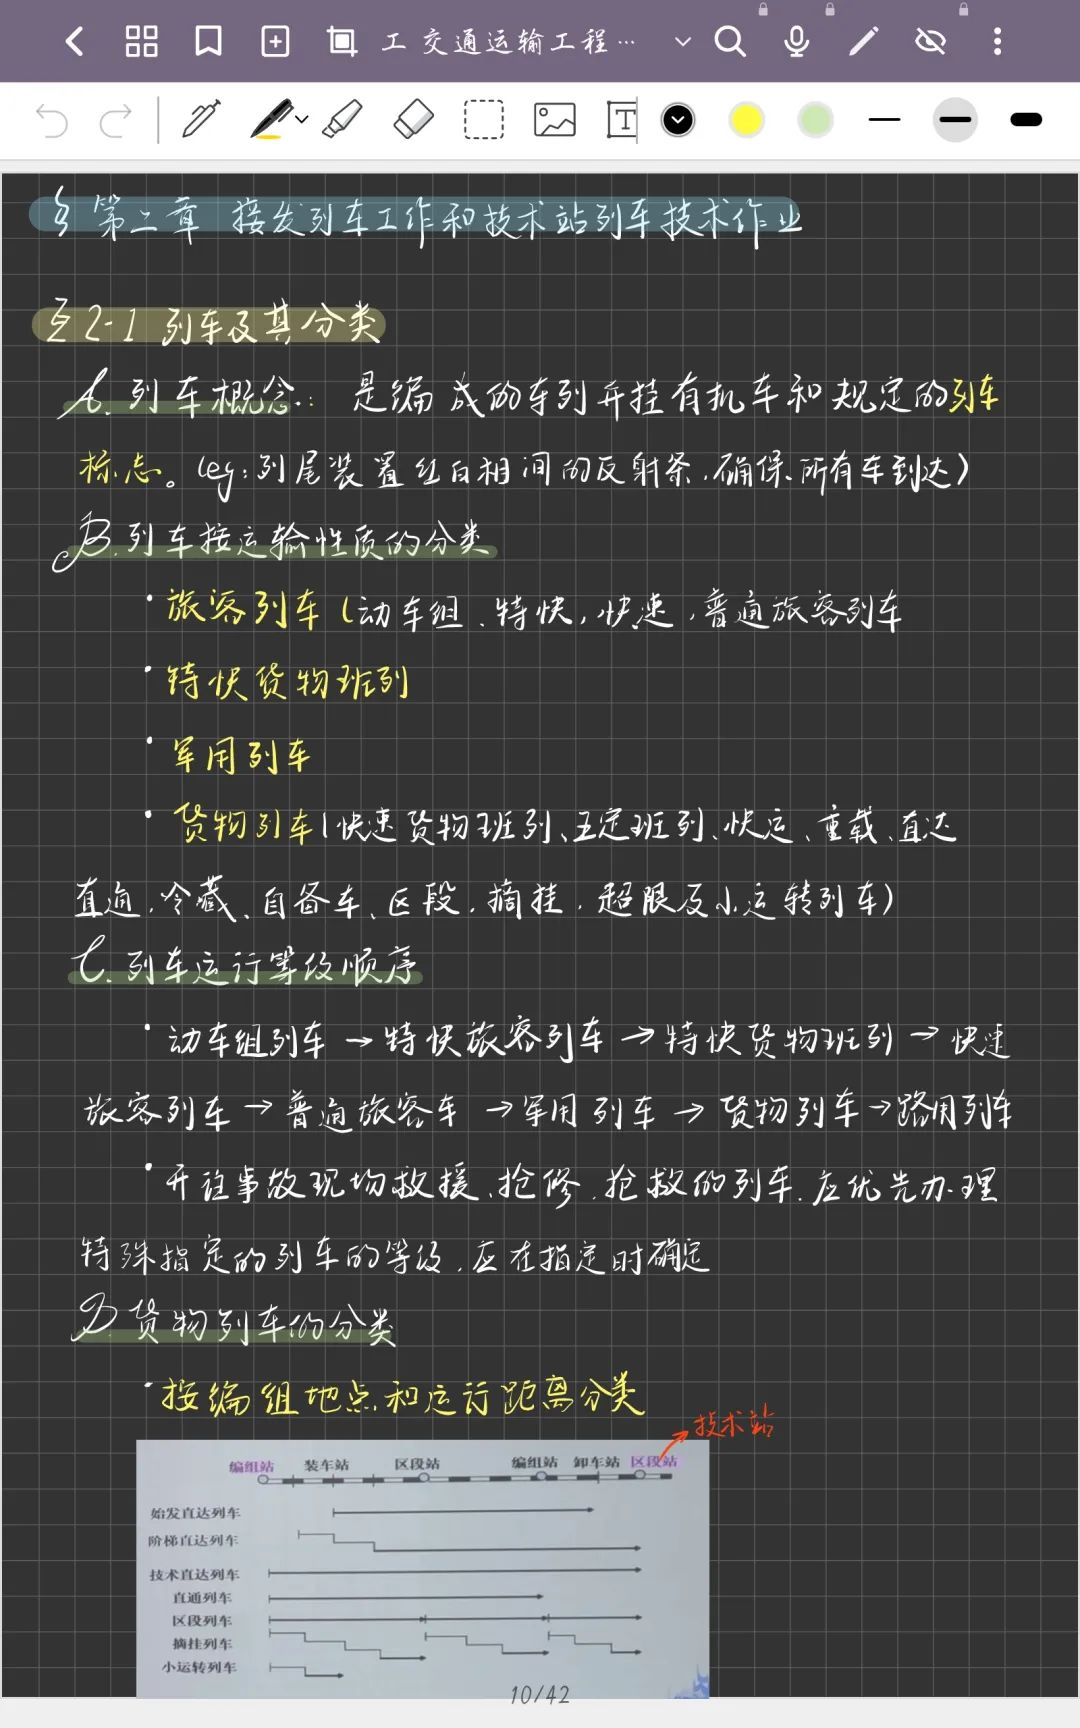 工 交通运输工程…
§ 第二章 接发列车工作和技术站列车技术作业
2-1 列车及其分类
A. 列车概念: 是编成的车列并挂有机车和规定的列车
标志。(eg:列尾装置红白相间的反射条,确保所有车到达)
B. 列车按运输性质的分类
· 旅客列车 (动车组、特快,快速,普通旅客列车
· 特快货物班列
· 军用列车
· 货物列车(快速货物班列、五定班列、快运、重载、直达
直通,冷藏、自备车、区段,摘挂,超限及小运转列车)
C. 列车运行等级顺序
· 动车组列车→特快旅客列车→特快货物班列→快速
旅客列车→普通旅客车→军用列车→货物列车→路用列车
· 开往事故现场救援、抢修,抢救的列车,应优先办理
特殊指定的列车的等级,应在指定时确定
D. 货物列车的分类
· 按编组地点和运行距离分类
技术站
编组站 装车站 区段站 编组站 卸车站 区段站
始发直达列车
阶梯直达列车
技术直达列车
直通列车
区段列车
摘挂列车
小运转列车
10/42